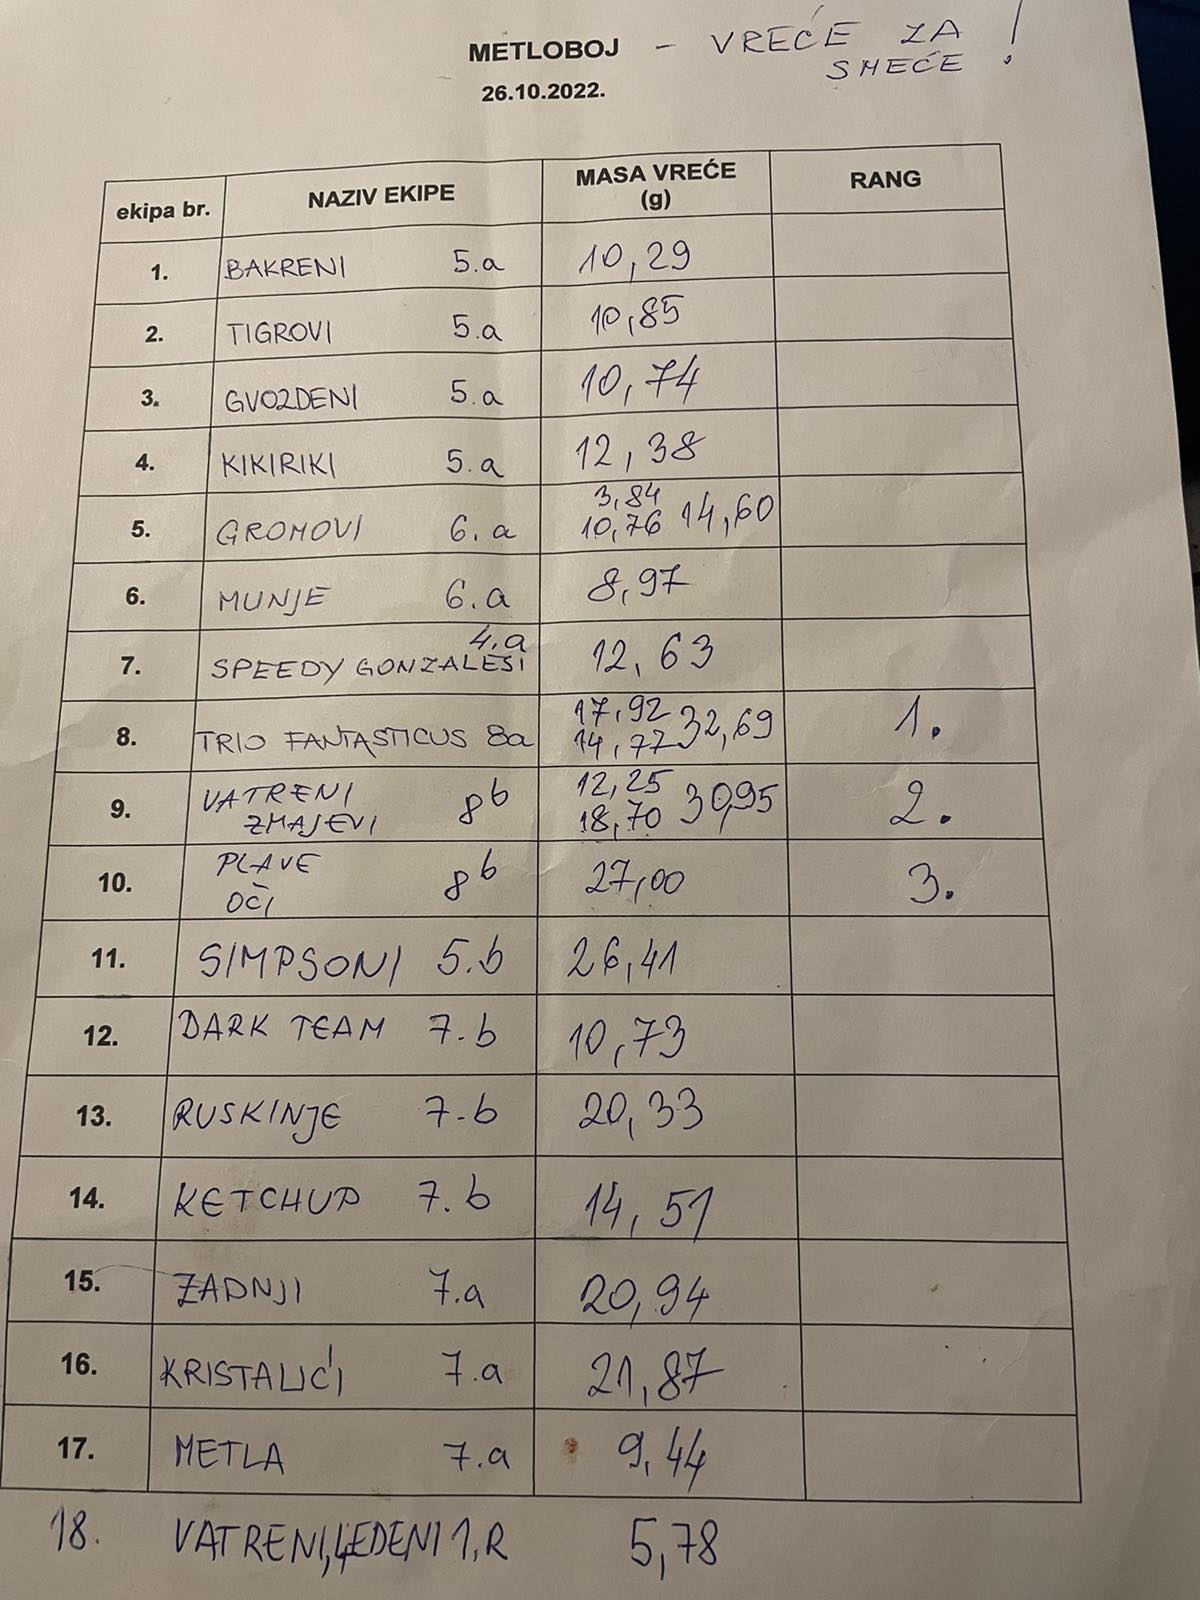 METLOBOJ - VREĆE ZA
SMEĆE !
26.10.2022.
ekipa br. NAZIV EKIPE MASA VREĆE (g) RANG
1. BAKRENI 5.a 10,29
2. TIGROVI 5.a 10,85
3. GVOZDENI 5.a 10,74
4. KIKIRIKI 5.a 12,38
5. GROMOVI 6.a 3,84 10,76 14,60
6. MUNJE 6.a 8,97
7. SPEEDY GONZALESI 4.a 12,63
8. TRIO FANTASTICUS 8a 17,92 14,77 32,69 1.
9. VATRENI ZMAJEVI 8b 12,25 18,70 30,95 2.
10. PLAVE OČI 8b 27,00 3.
11. SIMPSONI 5.b 26,41
12. DARK TEAM 7.b 10,73
13. RUSKINJE 7-b 20,33
14. KETCHUP 7.b 14,51
15. ZADNJI 7.a 20,94
16. KRISTALIĆI 7.a 21,87
17. METLA 7.a 9,44
18. VATRENI, LEDENI 1,R 5,78